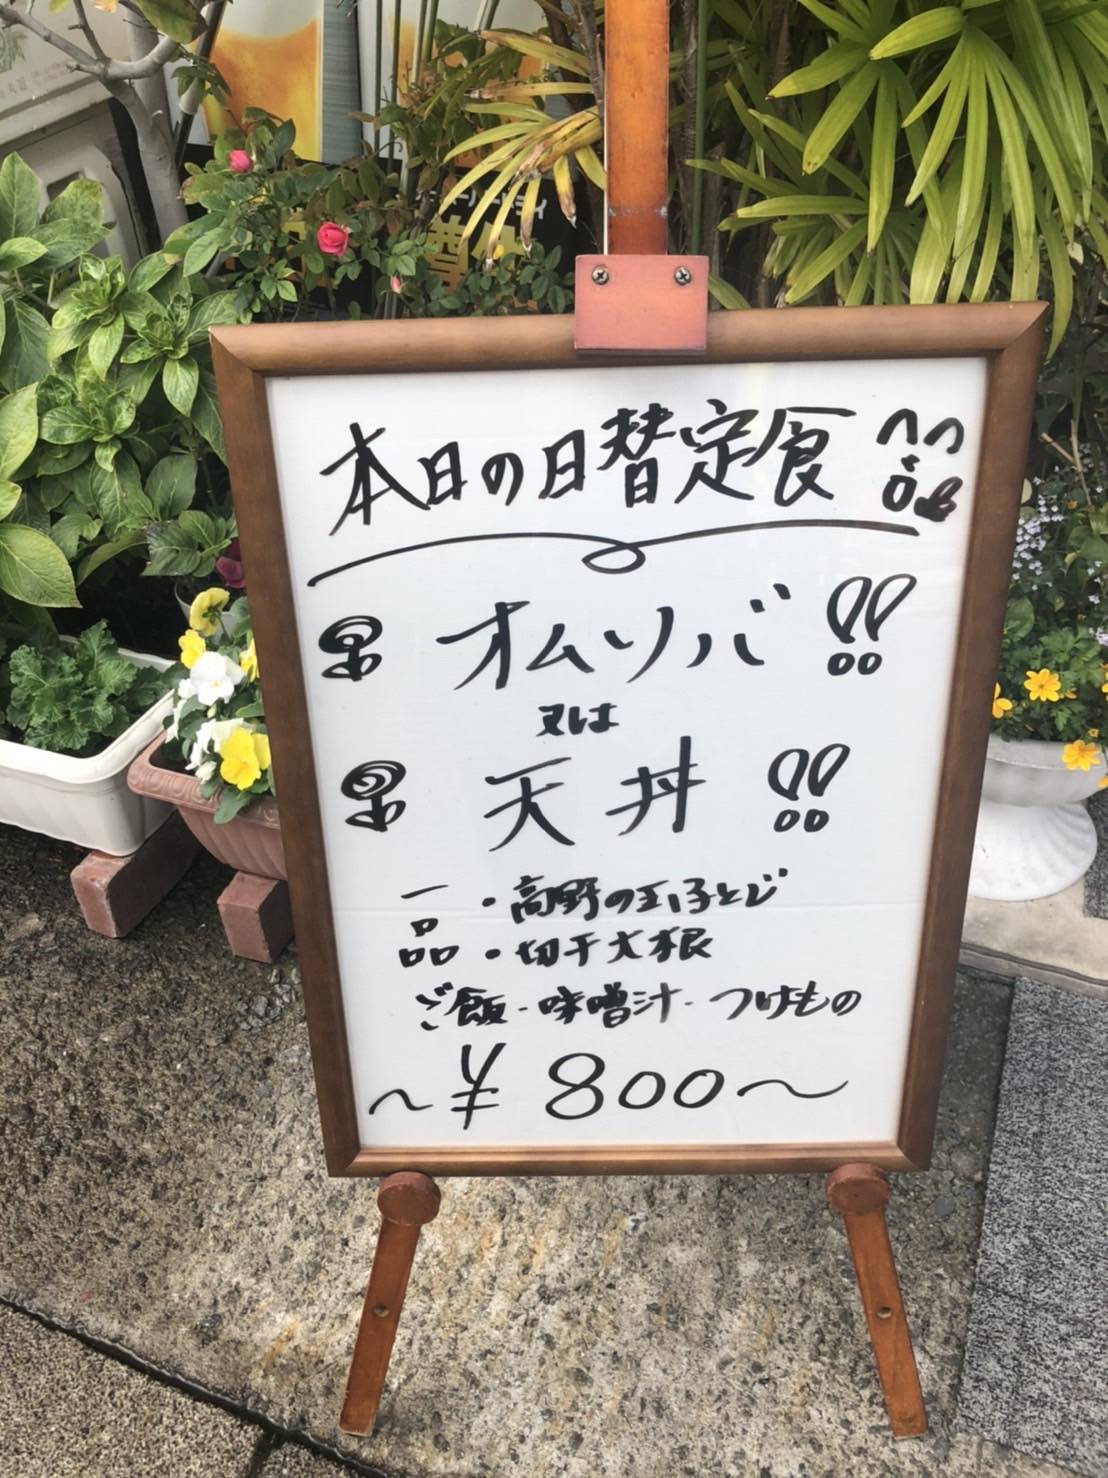 本日の日替定食
オムソバ!!
又は
天丼!!
一品・高野の玉子とじ
・切干大根
ご飯・味噌汁・つけもの
〜¥800〜